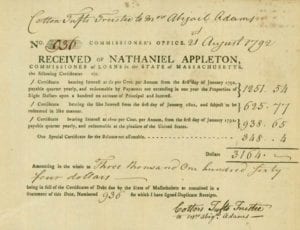 Cotton Tufts Trustee to Mrs Abigail Adams
No. 936 COMMISSIONER'S OFFICE, 21 August 1792
RECEIVED OF NATHANIEL APPLETON,
COMMISSIONER OF LOANS in the STATE OF MASSACHUSETTS,
the following Certificates
Certificate bearing Interest at six per Cent. per Annum, from the first day of January 1792,
payable quarter yearly, and redeemable by Payments not exceeding in one year the Proportion of 1251.54
Eight Dollars upon a hundred on account of Principal and Interest.
Certificate bearing the like Interest from the first day of January 1801, and subject to re-
deemable in like manner. 625.77
Certificate bearing Interest at three per Cent. per Annum, from the first day of January 1792,
payable quarter yearly, and redeemable at the pleasure of the United States. 938.65
One Special Certificate for the Balance not assumable. 348.4
Dollars 3164.
Amounting in the whole to Three thousand One hundred Sixty
four dollars
being in full of the Certificates of Debt due by the State of Massachusetts as contained in a
Statement of this date, Numbered 936 for which I have signed Duplicate Receipts.
Cotton Tufts Trustee
to Mrs Abigl Adams